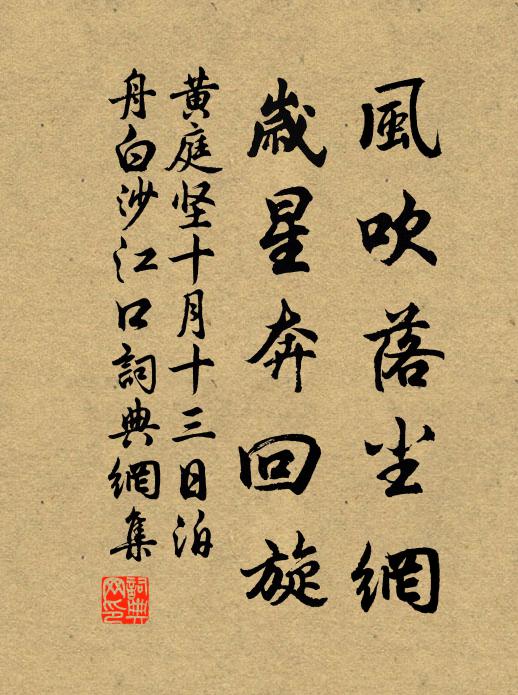 風吹落尘網
歲星奔回旋
黄庭坚十月十三日泊
舟白沙江口詞典網集
詞典
网印